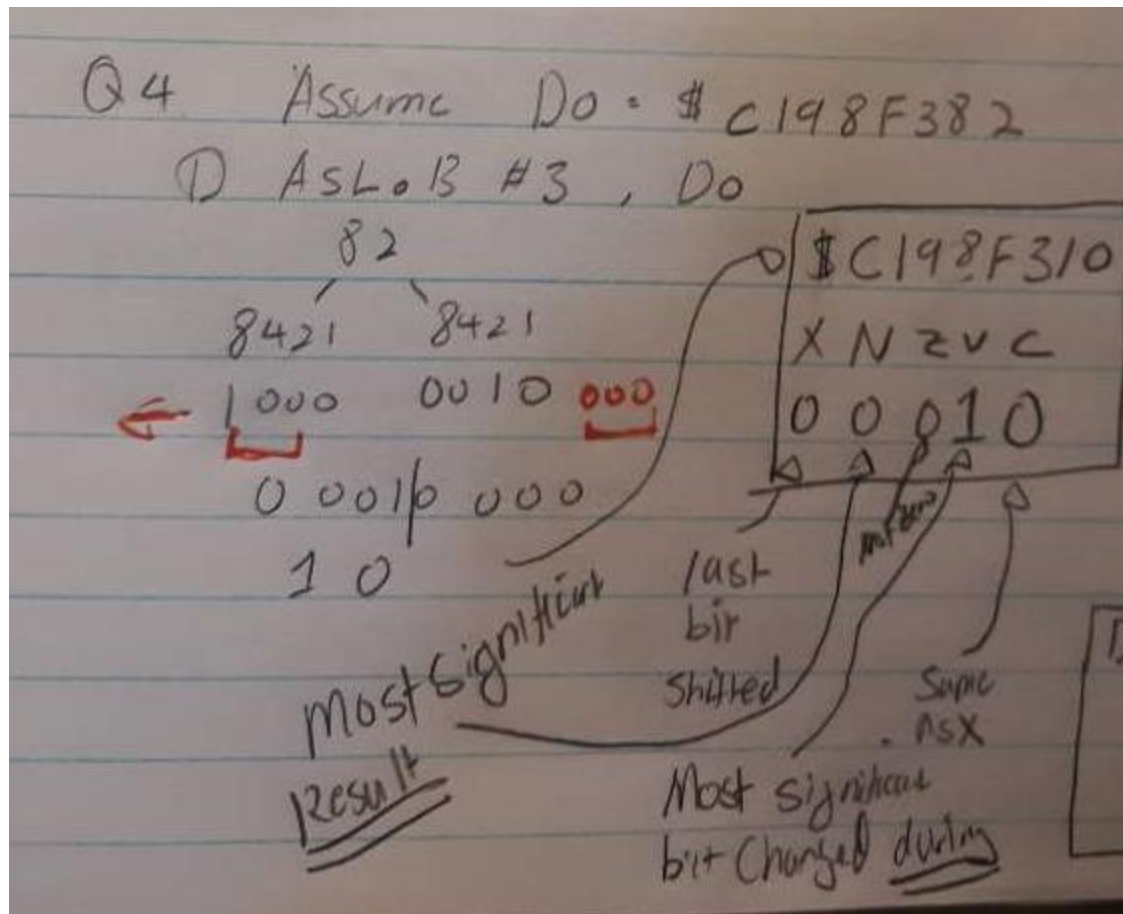 Q4 Assume Do = $ C198F382
① ASL.B #3 , Do
82
8421 8421
1000 0010 000
0 0010 000
1 0
$C198F310
X N Z V C
0 0 0 1 0
not zero
last
bit
shifted
Same
as X
Most significant
Result
Most significant
bit Changed during